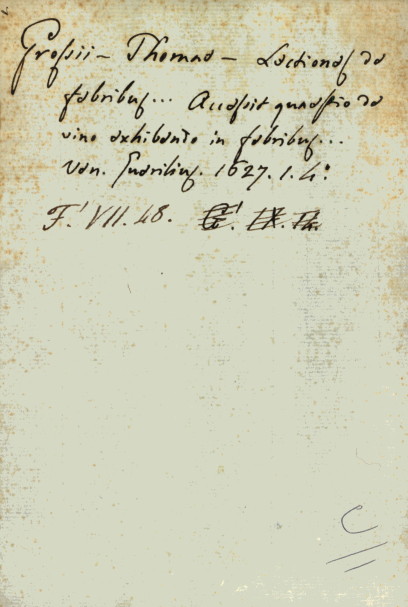 Grossii - Thomae - Lectiones de
febribus... Accessit quaestio de
vino exhibendo in febribus...
Ven. Guerilius. 1627. 1. 4º
F.' VII. 48.